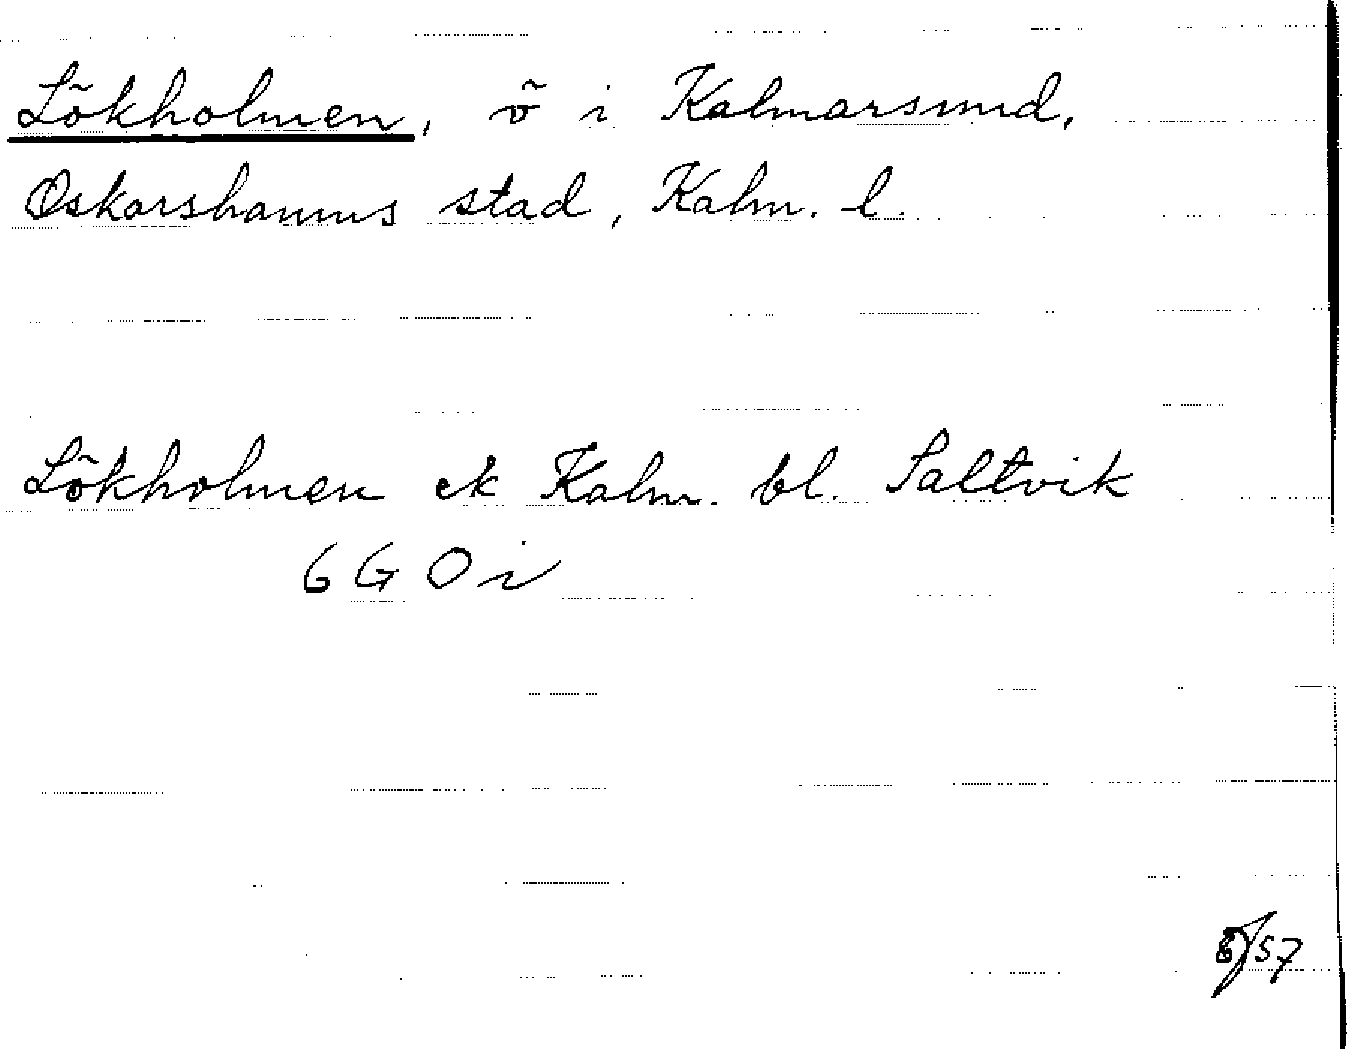 Lökholmen, ö i Kalmarsund,
Oskarshamns stad, Kalm. l.
Lökholmen ek Kalm. bl. Saltvik
6 G O i
/57